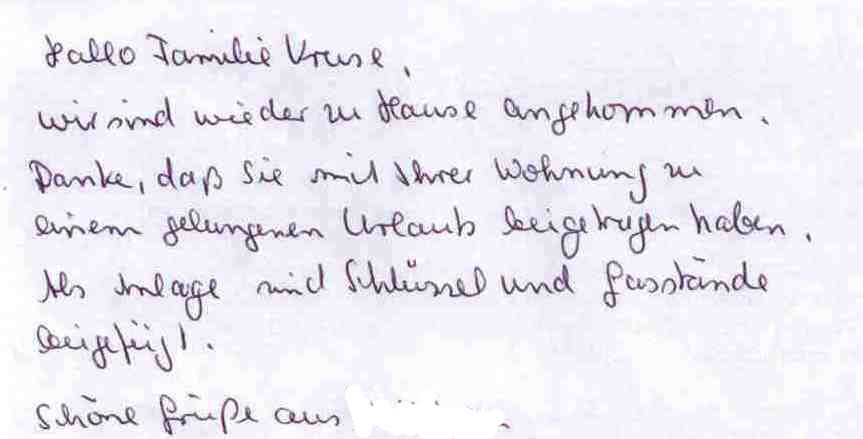 Hallo Familie Kruse,
wir sind wieder zu Hause angekommen.
Danke, daß Sie mit Ihrer Wohnung zu
einem gelungenen Urlaub beigetragen haben.
Als Anlage sind Schlüssel und Gasstände
beigefügt.
Schöne Grüße aus